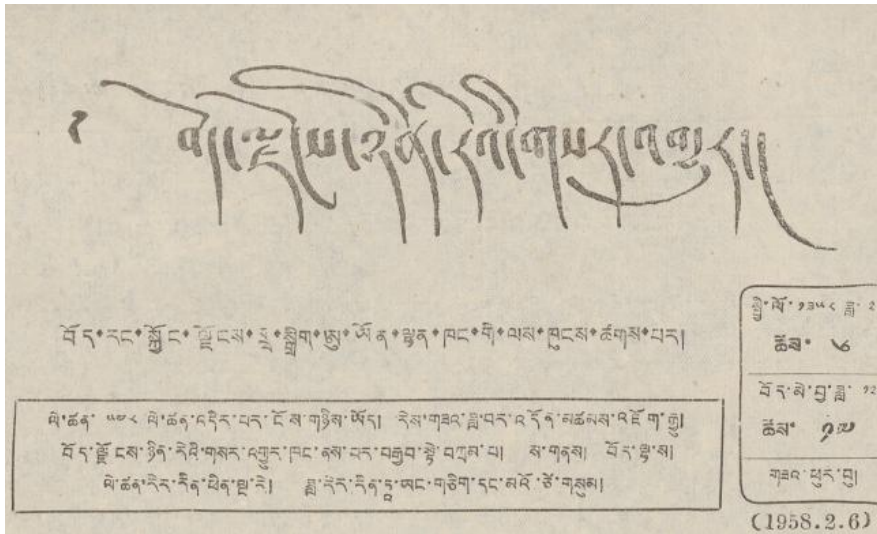 བོད་རང་སྐྱོང་ལྗོངས་ཏྲ་སྒྲིག་ཨུ་ཡོན་ལྷན་ཁང་གི་ལས་ཁུངས་ཚགས་པར།
ལེ་ཚན་ ༥༧༨ ལེ་ཚན་འདིར་པར་ངོས་གཉིས་ཡོད། རེས་གཟའ་ཟླ་བར་འདོན་མཚམས་འཇོག་རྒྱུ།
བོད་ལྗོངས་ཉིན་རེའི་གསར་འགྱུར་ཁང་ནས་པར་བརྒྱབ་སྟེ་བཀྲམ་པ། ས་གནས། བོད་ལྷ་ས།
ལེ་ཚན་རེར་རིན་ཕིན་ལྔ་རེ། ཟླ་རེར་རིན་ཏྭ་ཡང་གཅིག་དང་མའོ་ཙེ་གསུམ།
སྤྱི་ལོ་༡༩༥༨ ཟླ་ ༢
ཚེས་ ༦
བོད་མེ་བྱ་ཟླ་ ༡༢
ཚེས་ ༡༧
གཟའ་ཕུར་བུ།
(1958.2.6)